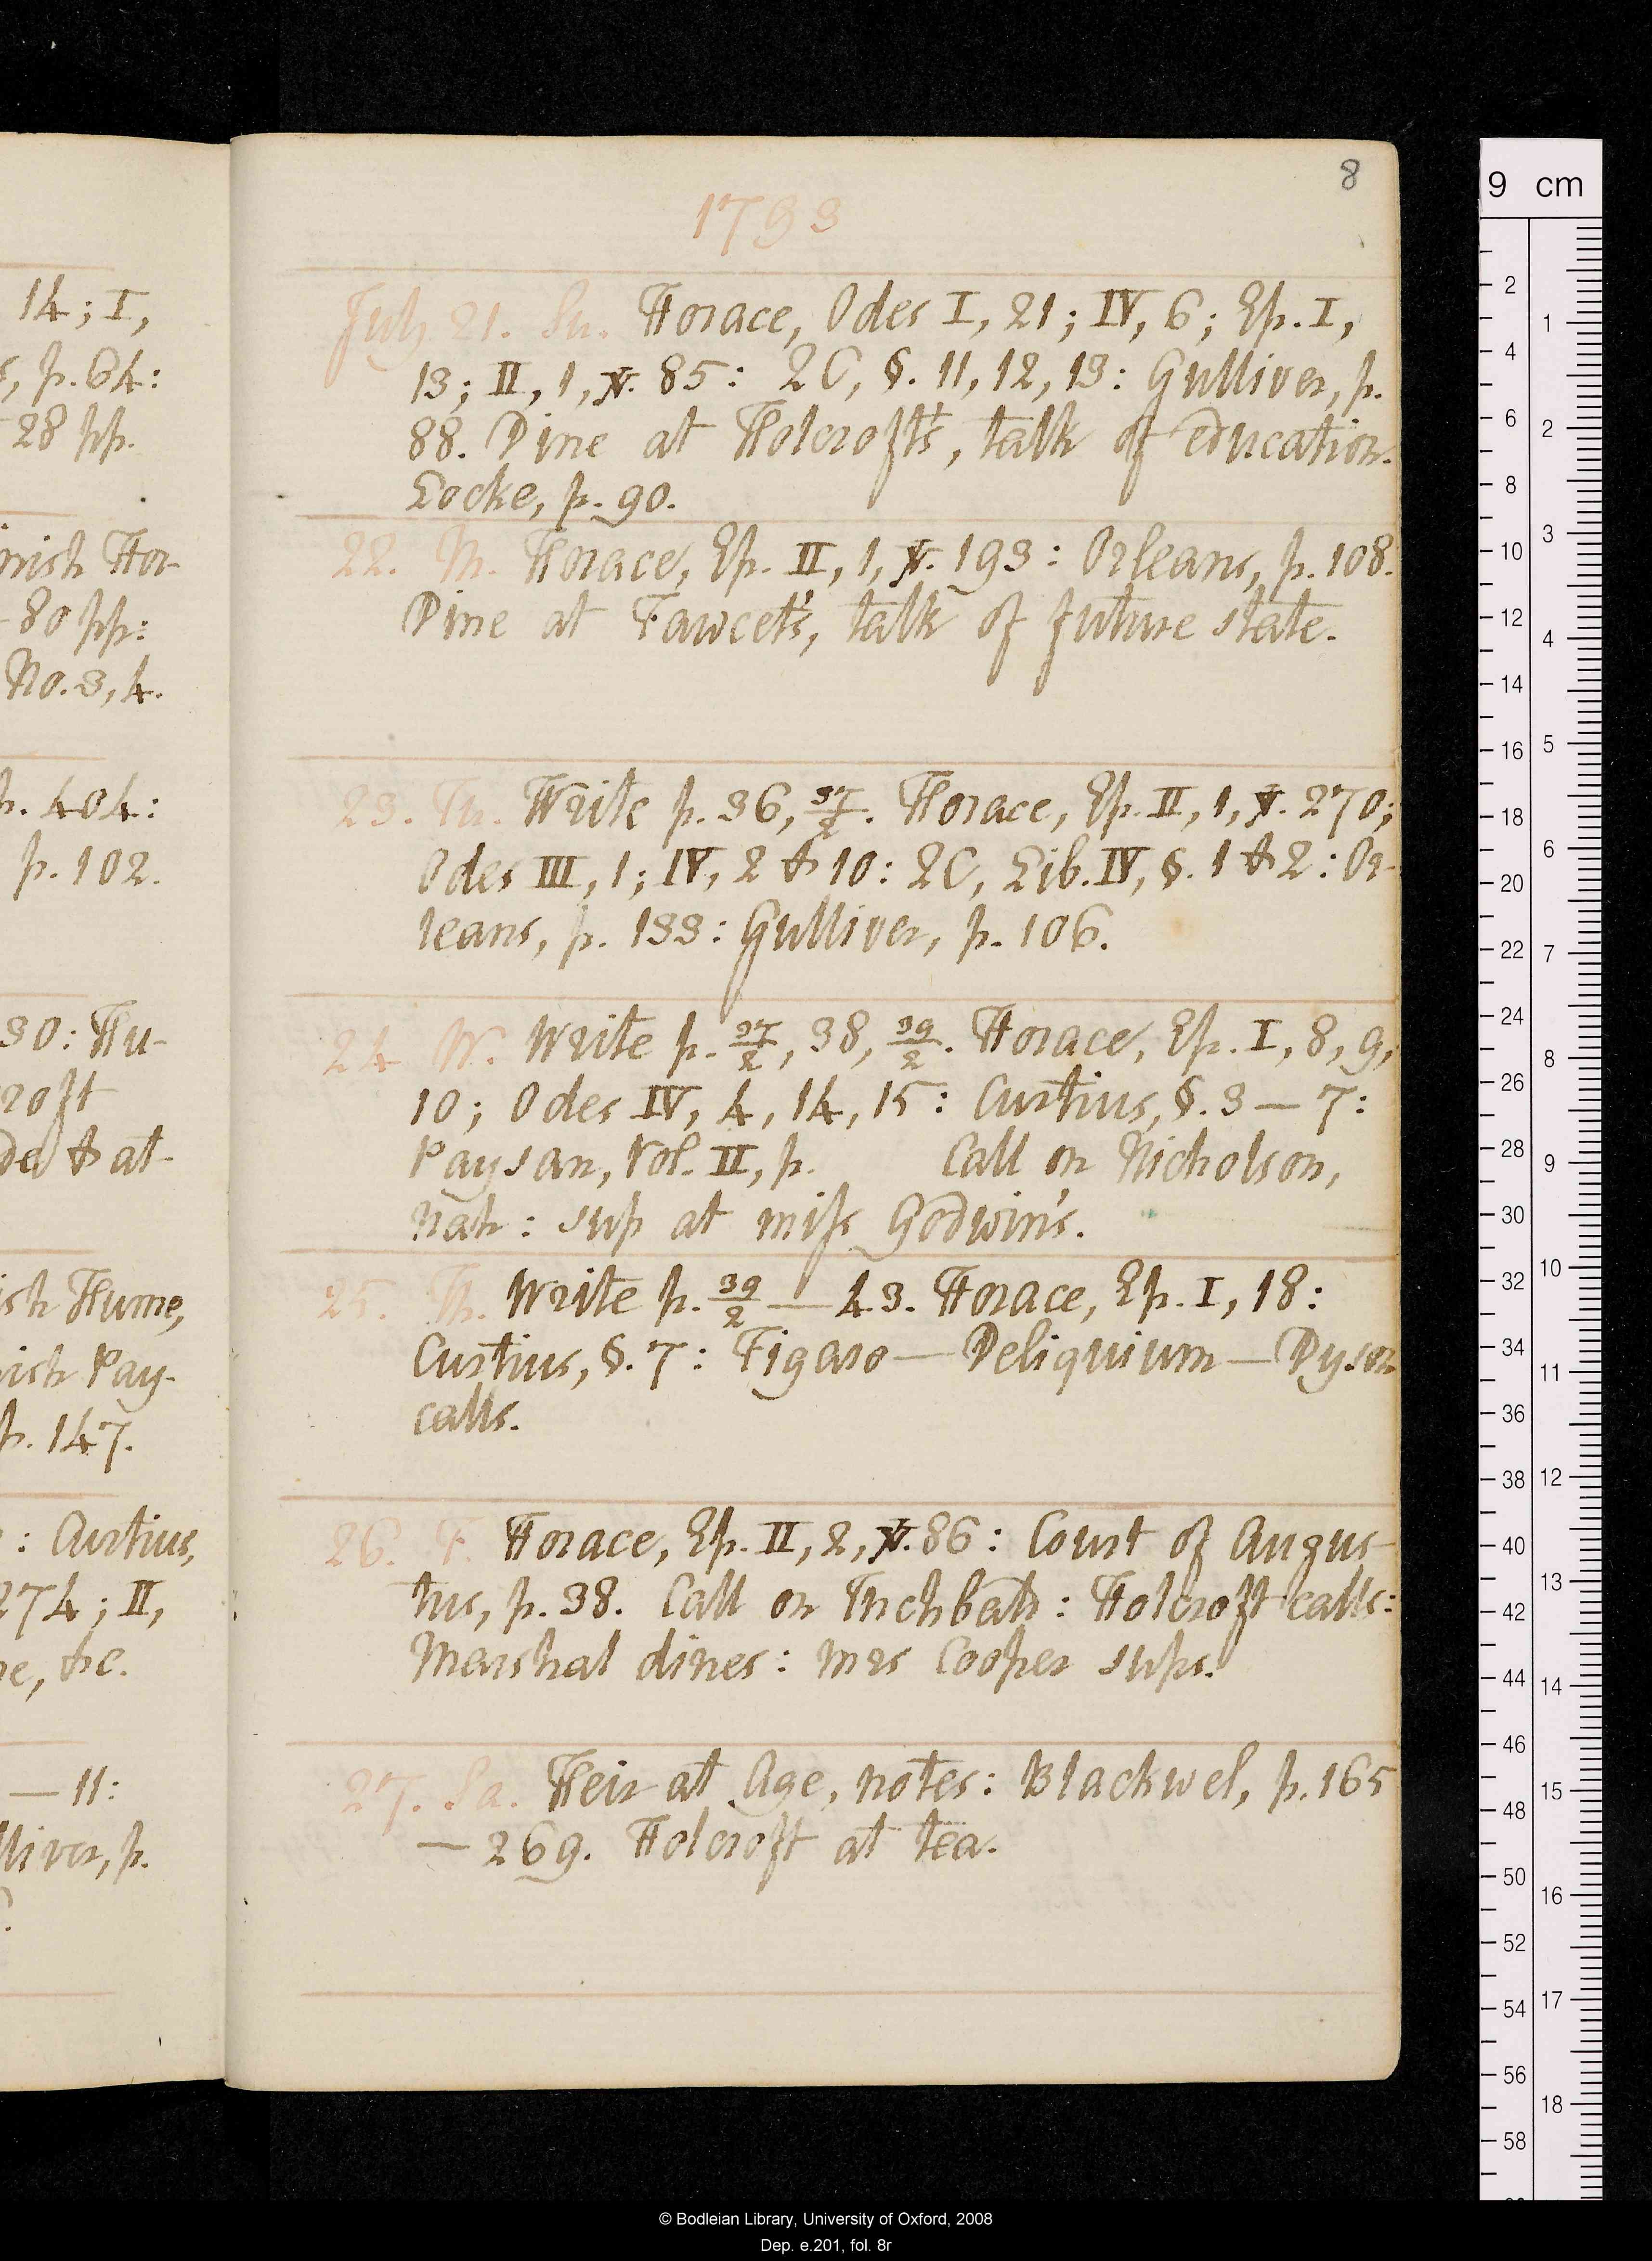 8
1793
14; I,
, p. 64:
28 pp.
nish Hor-
80 pp:
No. 3, 4.
p. 404:
p. 102.
30: Hu-
roft
& at-
ish Hume,
ish Pay-
p. 147.
: Curtius,
274; II,
, &c.
— 11:
lliver, p.
July 21. Su. Horace, Odes I, 21; IV, 6; Ep. I,
13; II, 1, v. 85: 2C, §. 11, 12, 13: Gulliver, p.
88. Dine at Holcroft's, talk of education.
Locke, p. 90.
22. M. Horace, Ep. II, 1, v. 193: Orleans, p. 108.
Dine at Fawcet's, talk of future state.
23. Tu. Write p. 36, 37/2. Horace, Ep. II, 1, v. 270;
Odes III, 1; IV, 2 & 10: 2C, Lib. IV, §. 1 & 2: Or-
leans, p. 133: Gulliver, p. 106.
24 W. Write p. 37/2, 38, 39/2. Horace, Ep. I, 8, 9,
10; Odes IV, 4, 14, 15: Curtius, §. 3 — 7:
Paysan, Vol. II, p. Call on Nicholson,
nah: sup at miss Godwin's.
25. Th. Write p. 39/2 — 43. Horace, Ep. I, 18:
Curtius, §. 7: Figaro — Deliquium — Dyson
calls.
26. F. Horace, Ep. II, 2, v. 86: Court of Augus-
tus, p. 38. Call on Inchbald: Holcroft calls:
Marshal dines: mrs Cooper sups.
27. Sa. Heir at Age, notes: Blackwel, p. 165
— 269. Holcroft at tea.
9 cm
2
4
6
8
10
12
14
16
18
20
22
24
26
28
30
32
34
36
38
40
42
44
46
48
50
52
54
56
58
1
2
3
4
5
6
7
8
9
10
11
12
13
14
15
16
17
18
© Bodleian Library, University of Oxford, 2008
Dep. e.201, fol. 8r